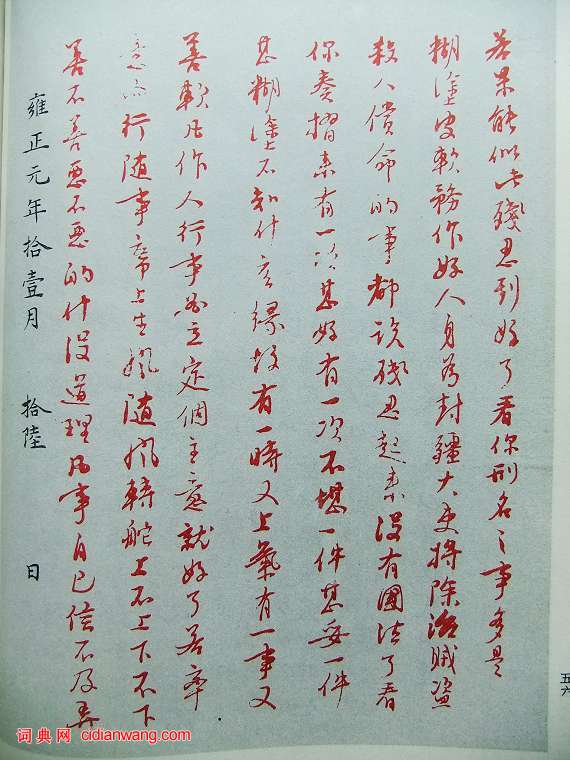 若果能似此殘忍到好了看你刑名之事多是
糊塗皮軟務作好人身為封疆大吏將除治賊盜
殺人償命的事都說殘忍起來沒有國法了看
你奏摺來有一次甚好有一次不堪一件甚妥一件
甚糊塗不知什麼緣故有一時又上氣有一事又
善軟凡作人行事必立定個主意就好了若率
意而行随事席上生風随風轉舵上不上下不下
善不善惡不惡的什沒道理凡事自己信不及弄
雍正元年拾壹月 拾陸 日
五六
词典网 cidianwang.com